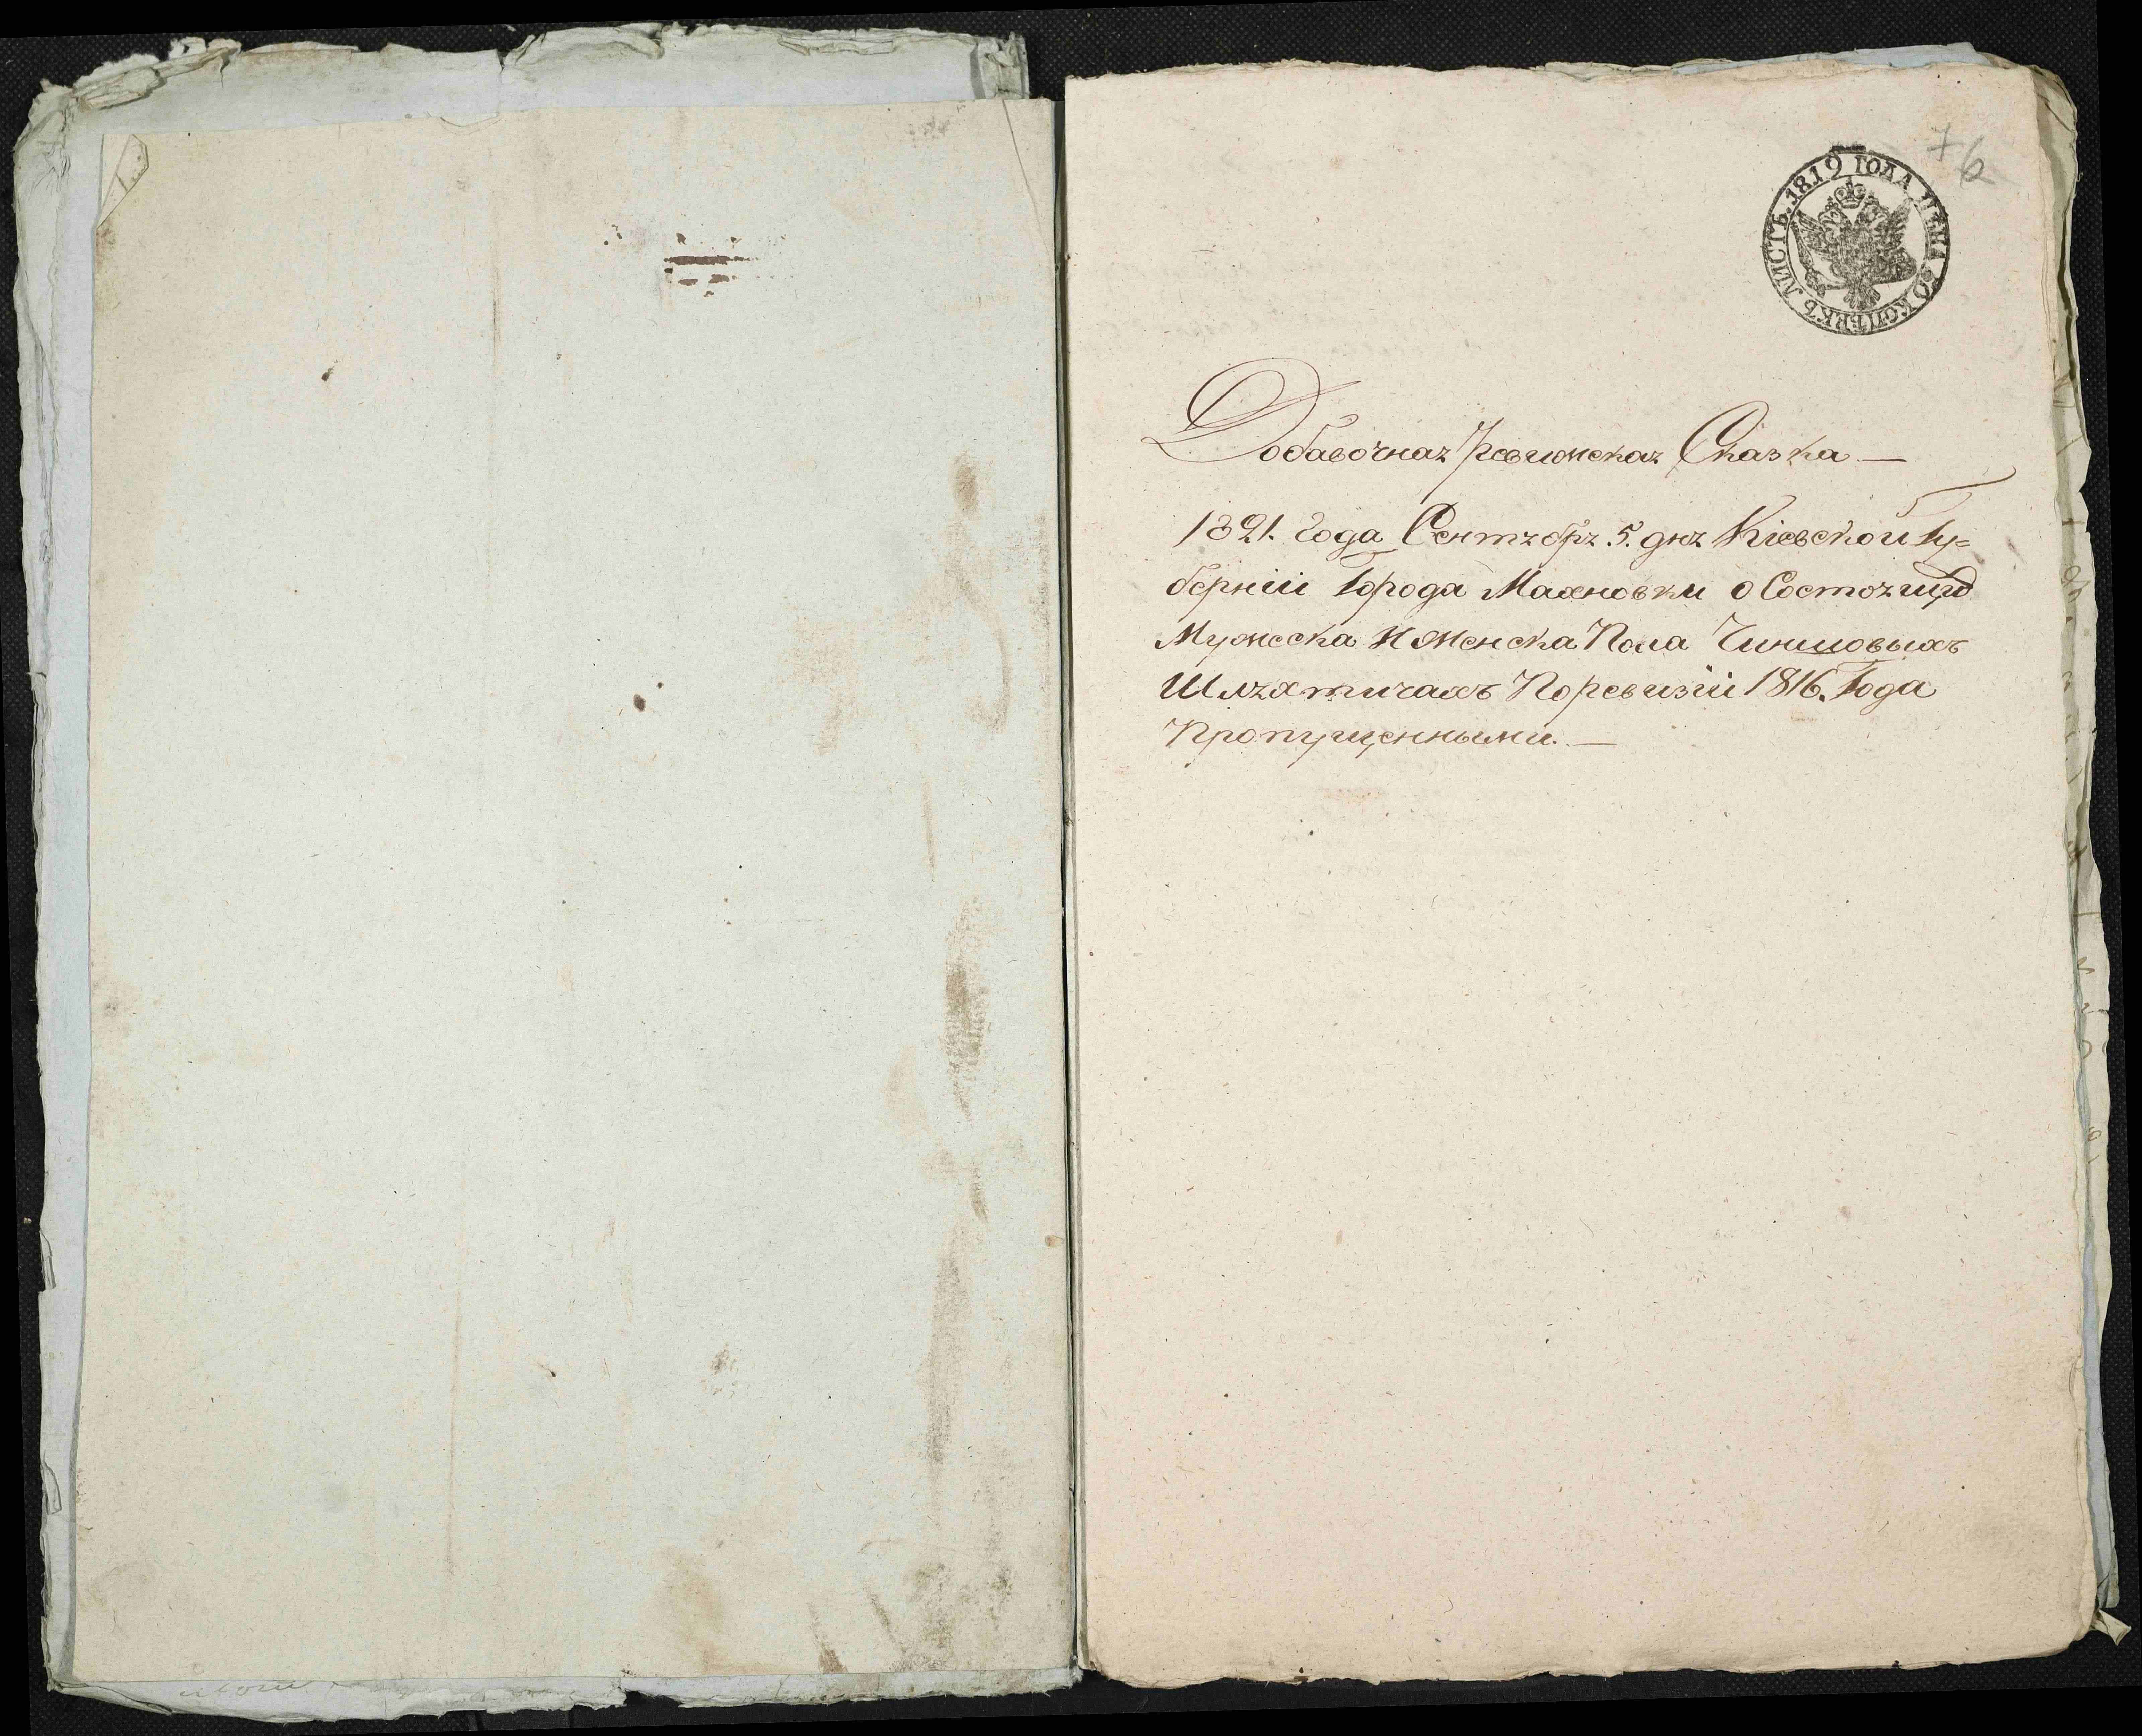 7 6
ЛИСТЪ. 1819 ГОДА ЦѢНА 50 КОПѢЕКЪ
Добавочная Ревижская Сказка —
1821. Года Сентября 5. дня Кіевской Гу=
берніи Города Махновки о Состоящихъ
Мужеска и женска Пола Чиншовыхъ
Шляхтичахъ По ревизіи 1816. Года
Пропущенными. —